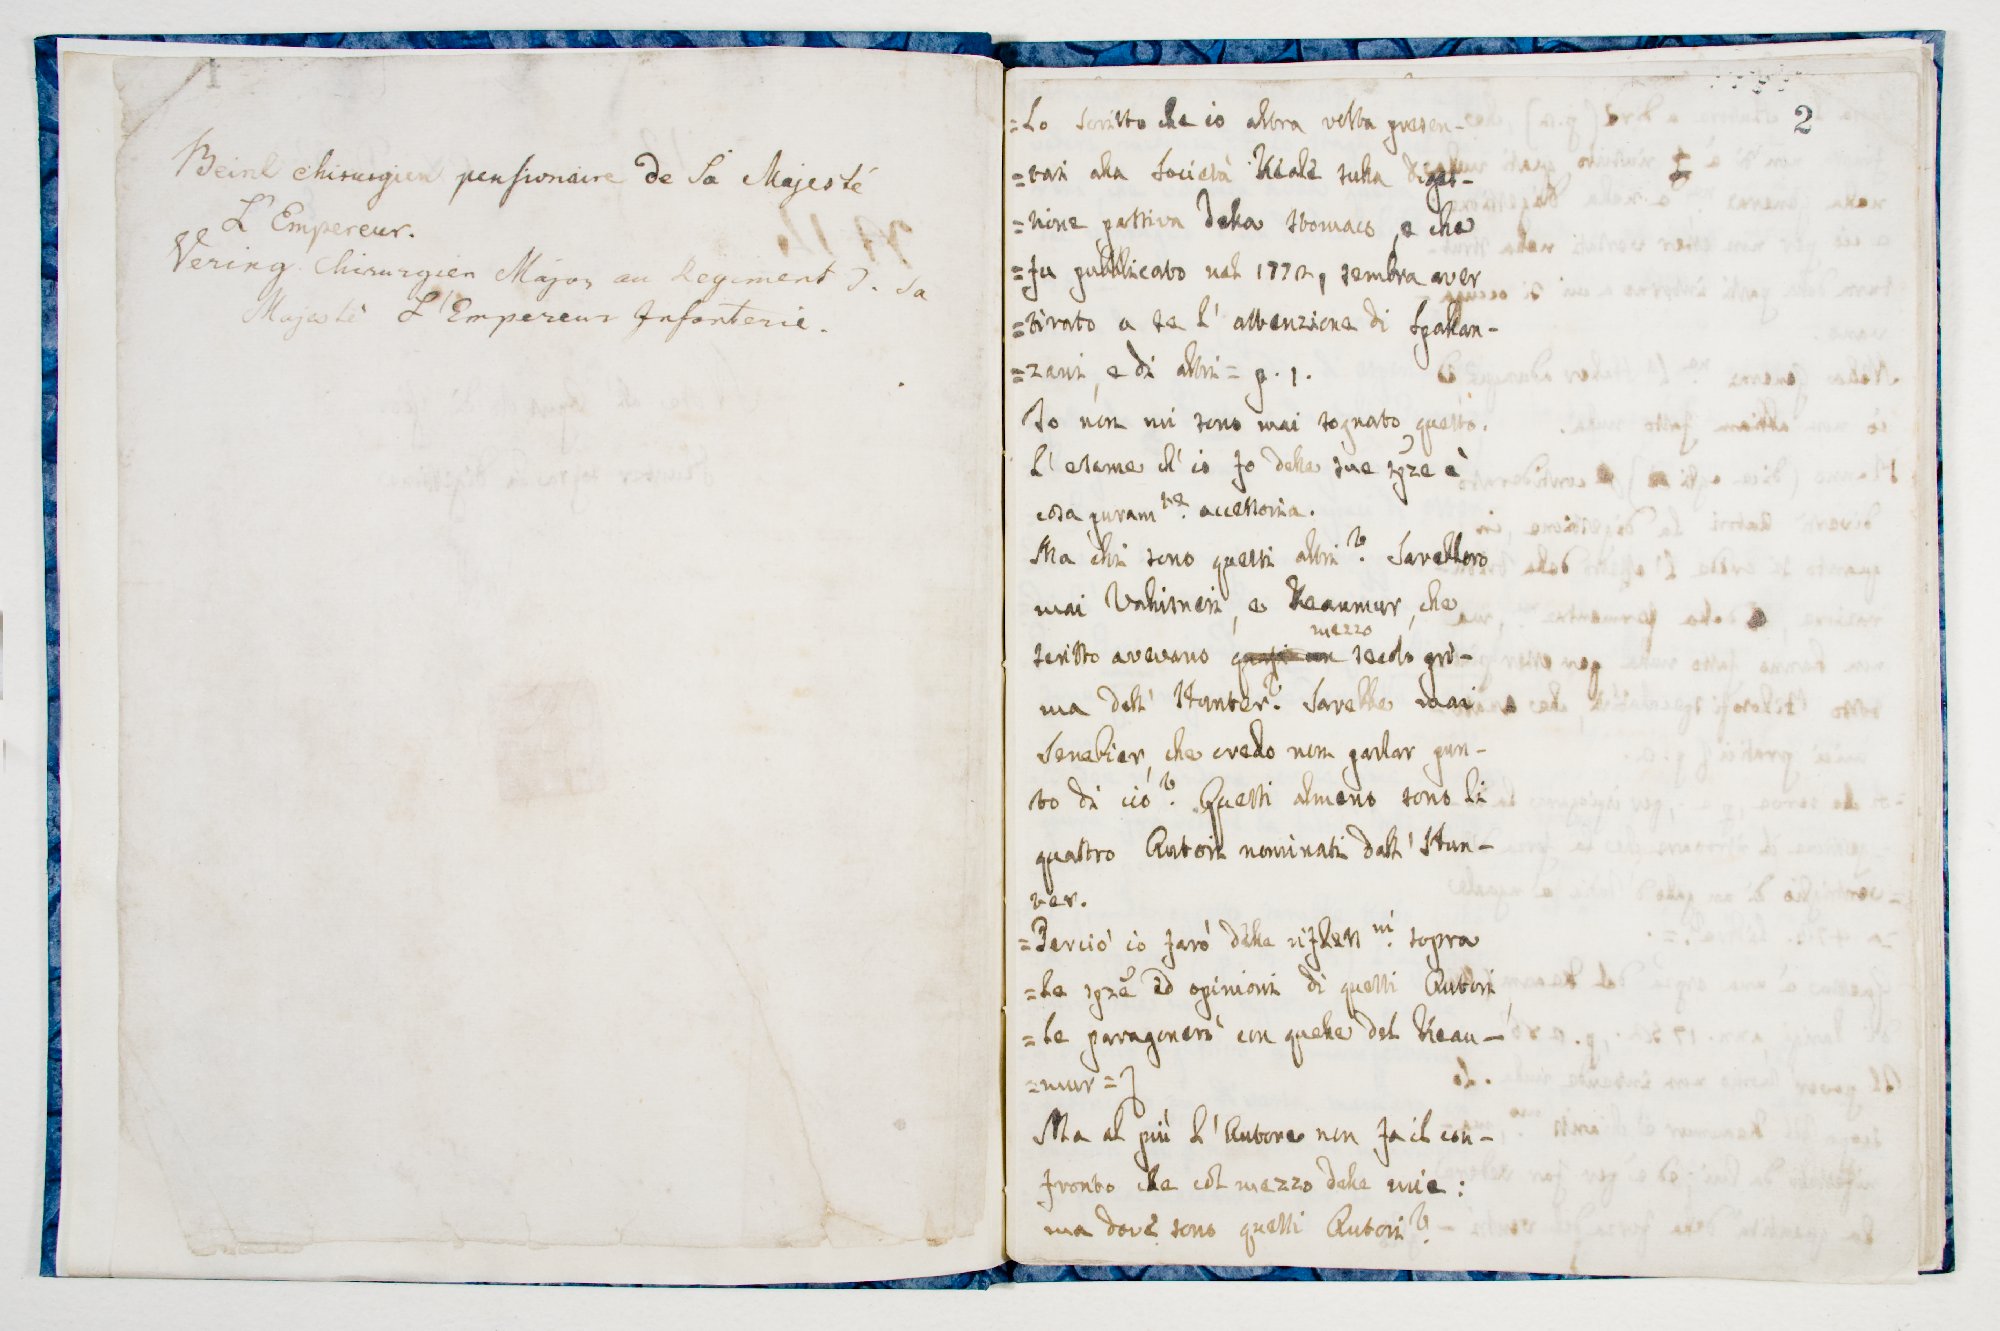 Beinl chirurgien pensionaire de Sa Majesté
L'Empereur.
Vering Chirurgien Major au Regiment d. Sa
Majesté L'Empereur Infanterie.
2
=Lo scritto che io altra volta presen-
=tai alla Società Reale sulla diges-
=tione dello stomaco, e che
=fu pubblicato nel 1772, sembra aver
=tirato a se l'attenzione di Spallan-
=zani, e di altri= p. 1.
Io non mi sono mai sognato questo.
L'esame ch'io fo delle sue spze è
cosa puram.te accessoria.
Ma chi sono questi altri? Sarebbero
mai Vallisneri, e Reaumur, che
mezzo
scritto avevano quasi un secolo pri-
ma dell'Hunter? Sarebbe mai
Senebier, che credo non parlar pun-
to di ciò? Questi almeno sono li
quattro Autori nominati dall'Hun-
ter.
=Perciò io farò delle rifless.ni sopra
=le spze ed opinioni di questi Autori,
=le paragonerò con quelle del Reau-
=mur=
Ma al più l'Autore non fa il con-
fronto che col mezzo delle mie:
ma dove sono questi Autori?